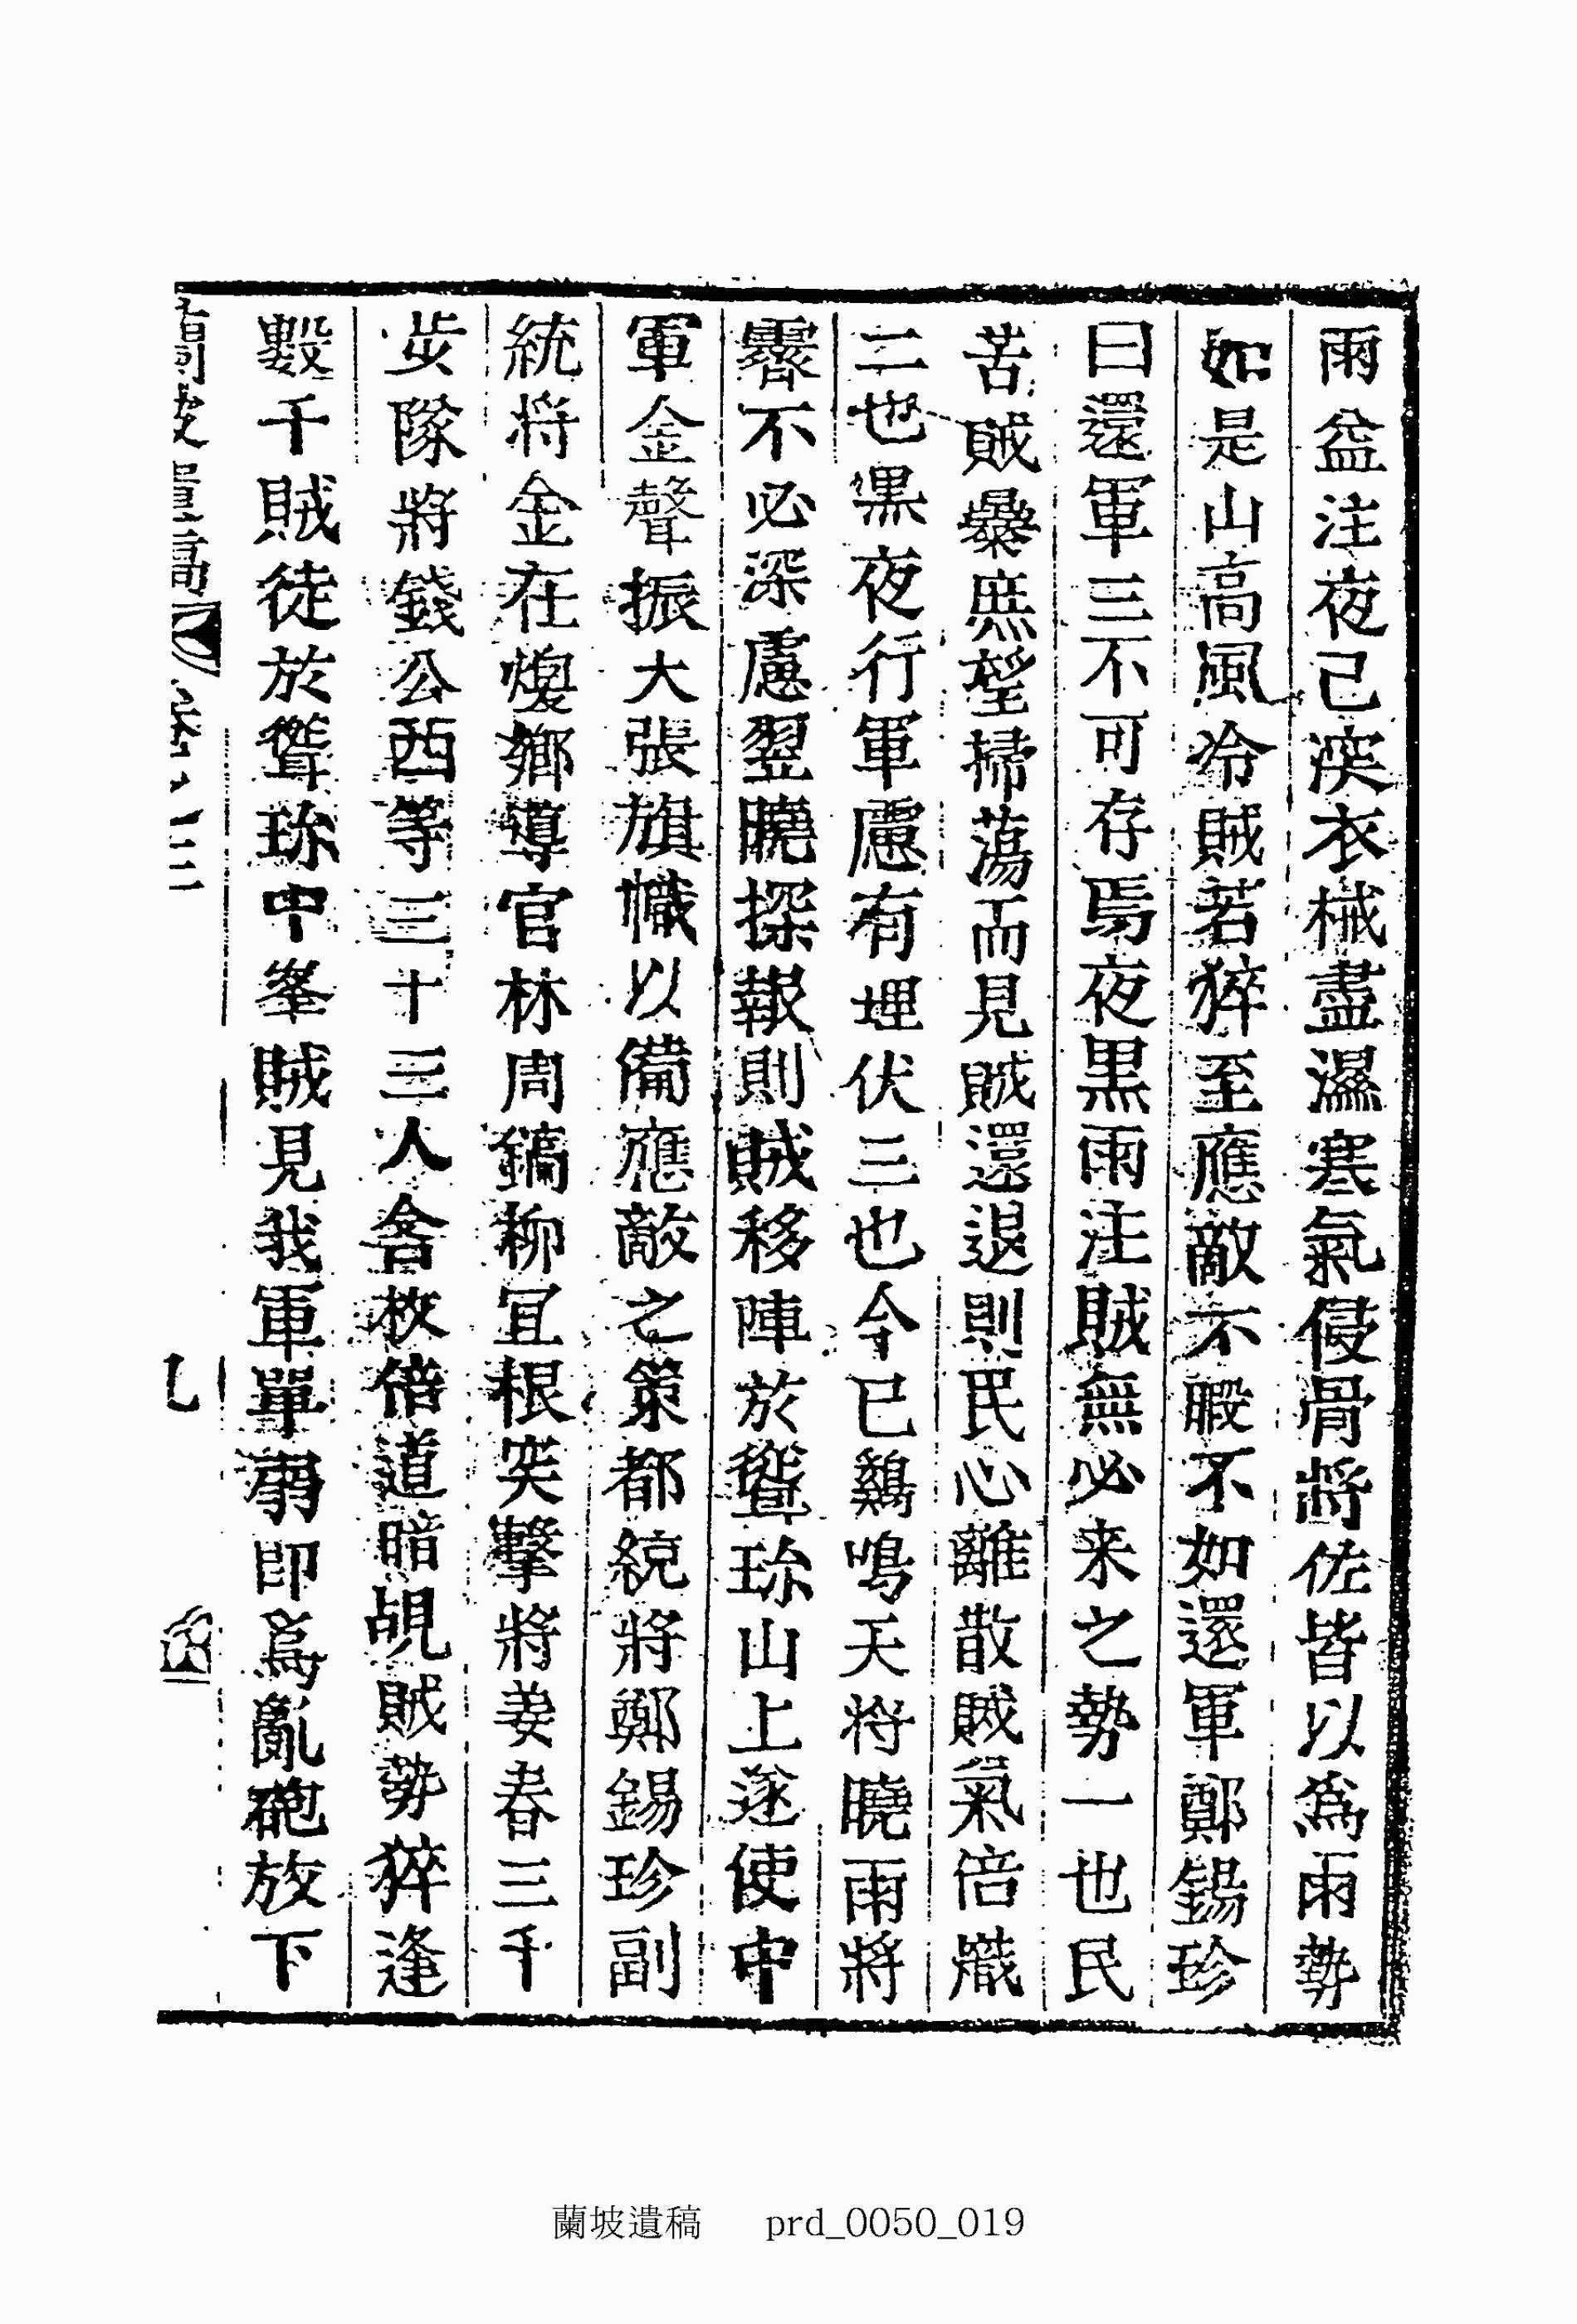 雨益注夜已深衣械盡濕寒氣侵骨將佐皆以爲雨勢
如是山高風冷賊若猝至應敵不暇不如還軍鄭錫珍
曰還軍三不可存焉夜黒雨注賊無必来之勢一也民
苦賊暴庶望掃蕩而見賊還退則民心離散賊氣倍熾
二也黒夜行軍慮有埋伏三也今已鷄鳴天将曉雨將
霽不必深慮翌曉探報則賊移陣於聳珎山上遂使中
軍金聲振大張旗幟以備應敵之策都統將鄭錫珍副
統将金在燰鄉導官林周鎬柳冝根突擊將姜春三千
步隊將錢公西等三十三人含枚倍道暗覘賊勢猝逢
數千賊徒於聳珎中峯賊見我軍單弱即爲亂砲放下
蘭坡遺稿 卷之二
蘭坡遺稿 prd_0050_019